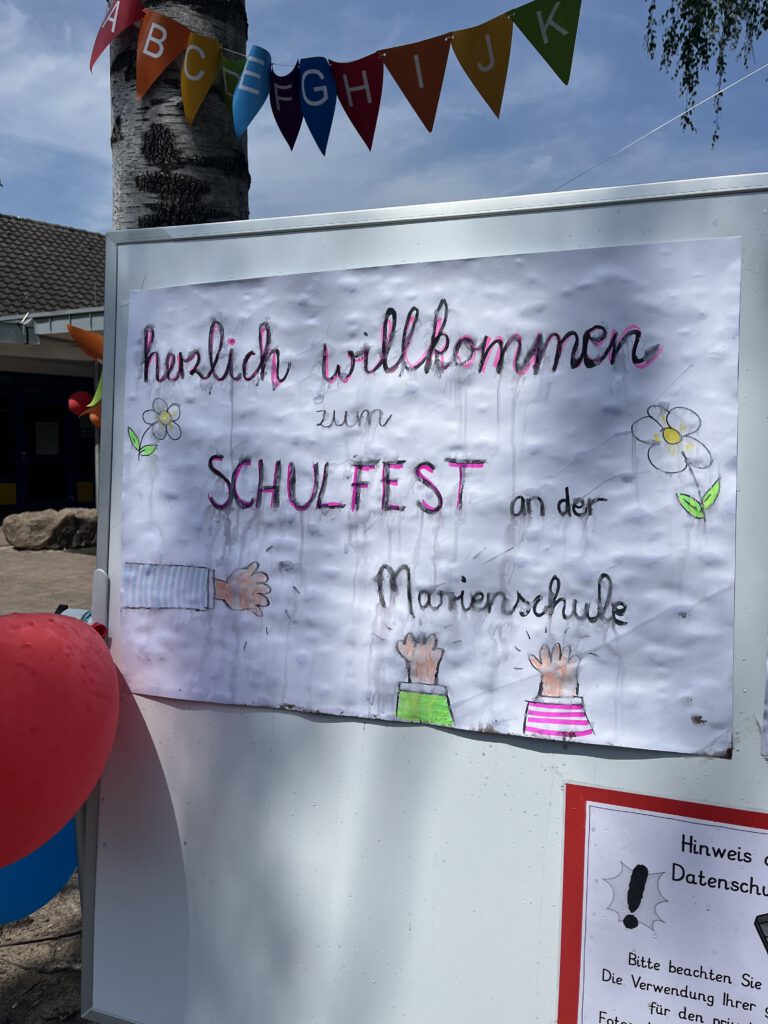 A B C D E F G H I J K
herzlich willkommen
zum
SCHULFEST an der
Marienschule
Hinweis
Bitte beachten Sie
Die Verwendung Ihrer
für den